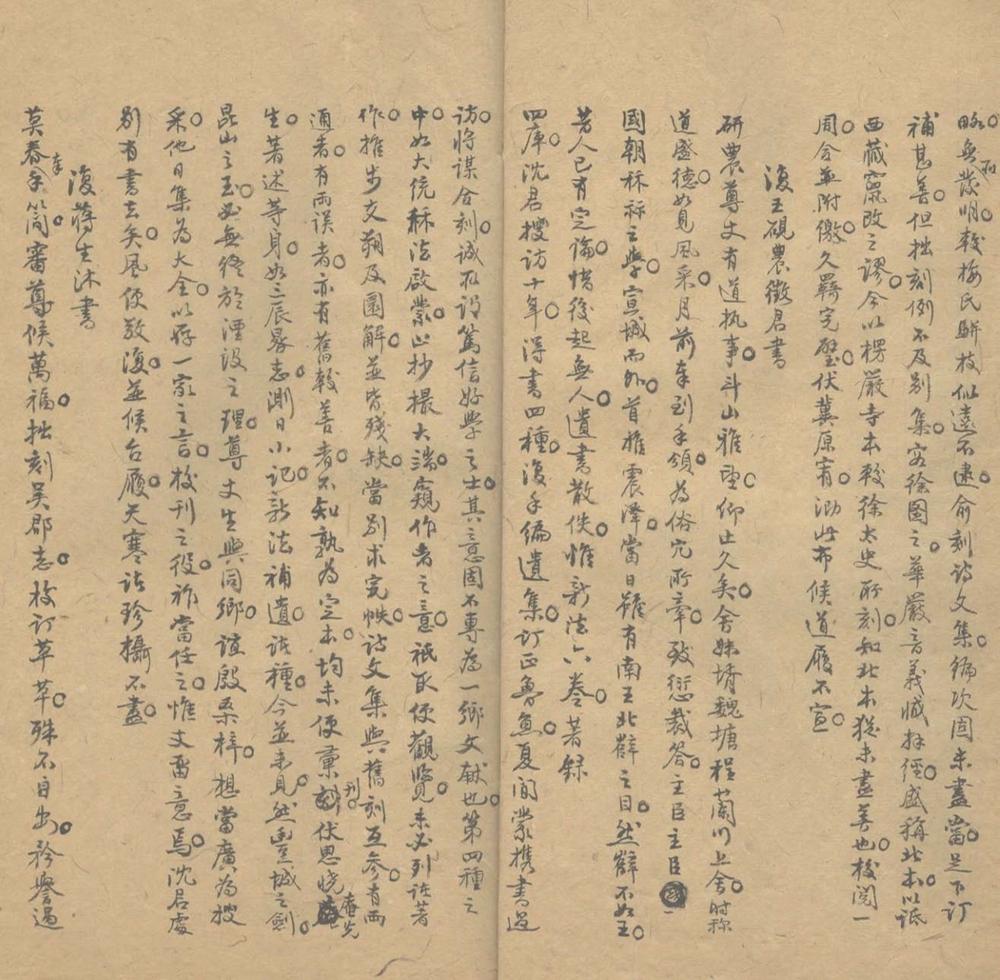 略無發明較梅民駢枝似遠不逮俞刻詩文集編次固未盡當足下訂
補甚善但拙刻例不及別集客徐圖之華嚴音義臧拜經盛稱北本以詆
西藏竄改之謬今以楞嚴寺本較徐太史所刻知北本猶未盡善也校閱一
周今並附繳久羈完璧伏冀原宥泐此布候道履不宣
復王硯農徵君書
研農尊丈有道執事斗山雅望仰止久矣舍妹壻魏塘程蘭川上舍時稱
道盛德如見風采月前奉到手領為俗冗所牽致愆裁答主臣主臣
國朝秝祘之學宣城而外首推震澤當日雖有南王北薛之目然薛不如王
芳人已有定論惜後起無人遺書散佚惟新法六卷著錄
四庫沈君搜訪十年得書四種復手編遺集訂正魯魚夏間蒙携書過
訪將謀合刻誠所謂篤信好學之士其意固不專為一鄉文獻也第四種之
中如大統秝法啟蒙止抄撮大端窺作者之意祇取便觀覽未必列諸著
作推步交朔及圜解並皆殘缺當別求完帙詩文集與舊刻互參有兩
通者有兩誤者亦有舊較善者不知孰為定本均未便彙刊伏思曉庵先
生著述等身如三辰晷志測日小記新法補遺諸種今並未見然豐城之劍
昆山之玉必無終於湮沒之理尊丈生與同鄉誼殷桑梓想當廣為搜
采他日集為大全以存一家之言校刊之役祚當任之惟丈留意焉沈君處
別有書去矣風便敬復並候台履天寒諸珍攝不盡
復蔣生沐書
莫春奉手簡審尊候萬福拙刻吳郡志校訂草草殊不自出矜譽過